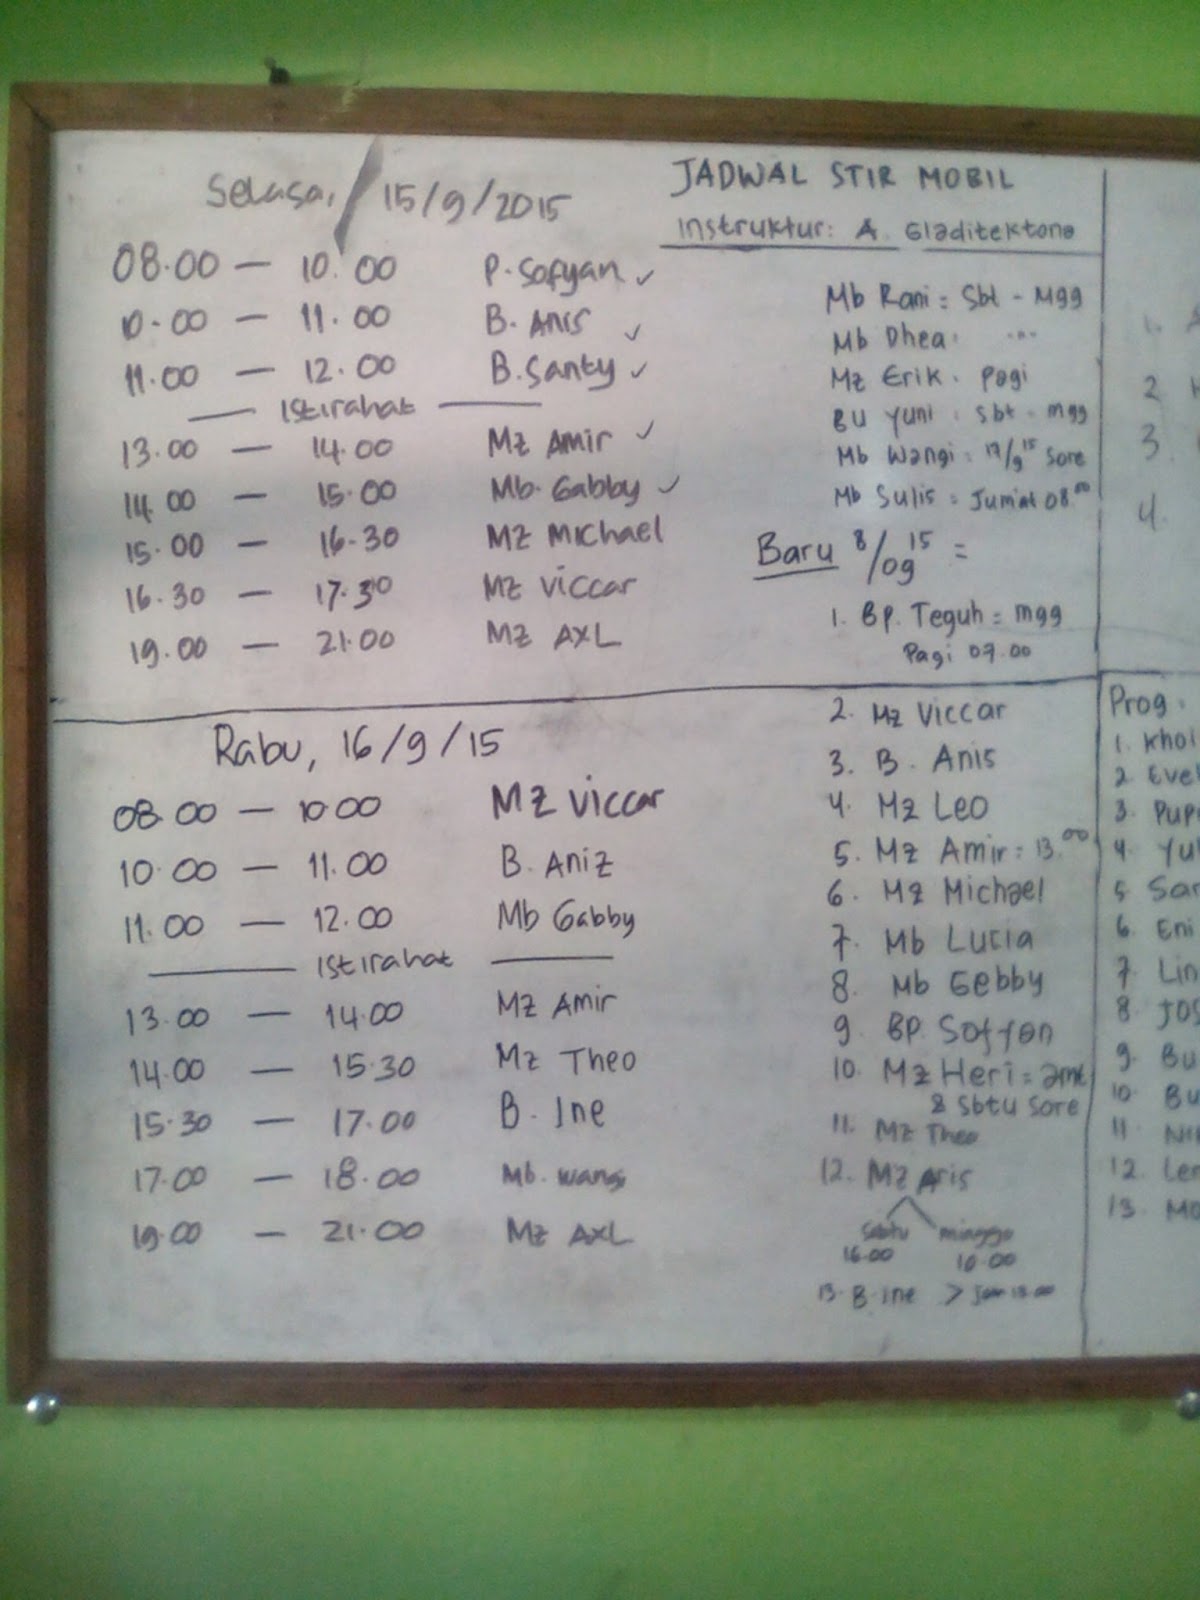 Selasa, 15/9/2015
08.00 — 10.00 P. Sofyan ✓
10.00 — 11.00 B. Anis ✓
11.00 — 12.00 B. Santy ✓
Istirahat
13.00 — 14.00 Mz Amir ✓
14.00 — 15.00 Mb. Gabby ✓
15.00 — 16.30 Mz Michael
16.30 — 17.30 Mz Viccar
19.00 — 21.00 Mz AXL
Rabu, 16/9/15
08.00 — 10.00 Mz Viccar
10.00 — 11.00 B. Aniz
11.00 — 12.00 Mb Gabby
Istirahat
13.00 — 14.00 Mz Amir
14.00 — 15.30 Mz Theo
15.30 — 17.00 B. Ine
17.00 — 18.00 Mb. Wangi
19.00 — 21.00 Mz AXL
JADWAL STIR MOBIL
Instruktur: A. Gladitektona
Mb Rani = Sbt - Mgg
Mb Dhea
Mz Erik. Pagi
Bu Yuni = Sbt - mgg
Mb Wangi = 17/9 15 Sore
Mb Sulis = Jumat 08.00
Baru 8/09 15 =
1. Bp. Teguh = mgg
Pagi 07.00
2. Mz Viccar
3. B. Anis
4. Mz Leo
5. Mz Amir = 13.00
6. Mz Michael
7. Mb Lucia
8. Mb Gebby
9. BP. Soffan
10. Mz Heri =
& Sbtu Sore
11. Mz Theo
12. Mz Aris
Sabtu minggo
16.00 10.00
13. B. Ine > Jam
1.
2
3.
4.
Prog.
1. Khol
2. Eve
3. Pup
4. Yu
5. Sar
6. Eni
7. Lin
8. JOS
9. Bu
10. Bu
11
12. Ler
13. Mo